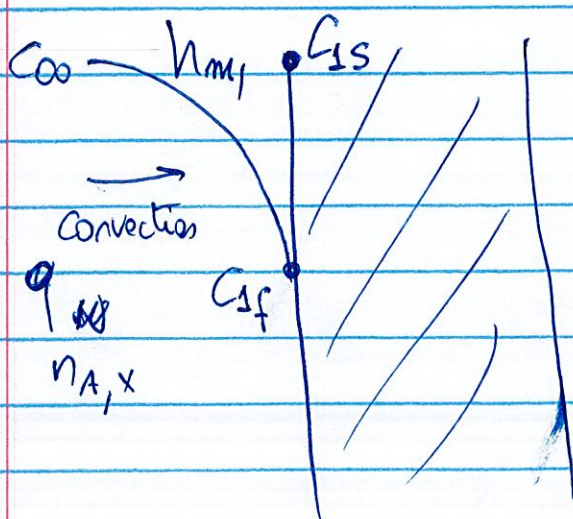 C∞ hm₁ C1s
Convection
C1f
nA,x